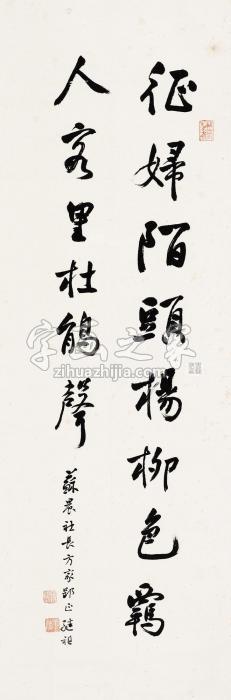 征婦陌頭楊柳色羈
人客里杜鵑聲
蘇晨社長方家郢正 繼祖
字画之家
zihuazhijia.com